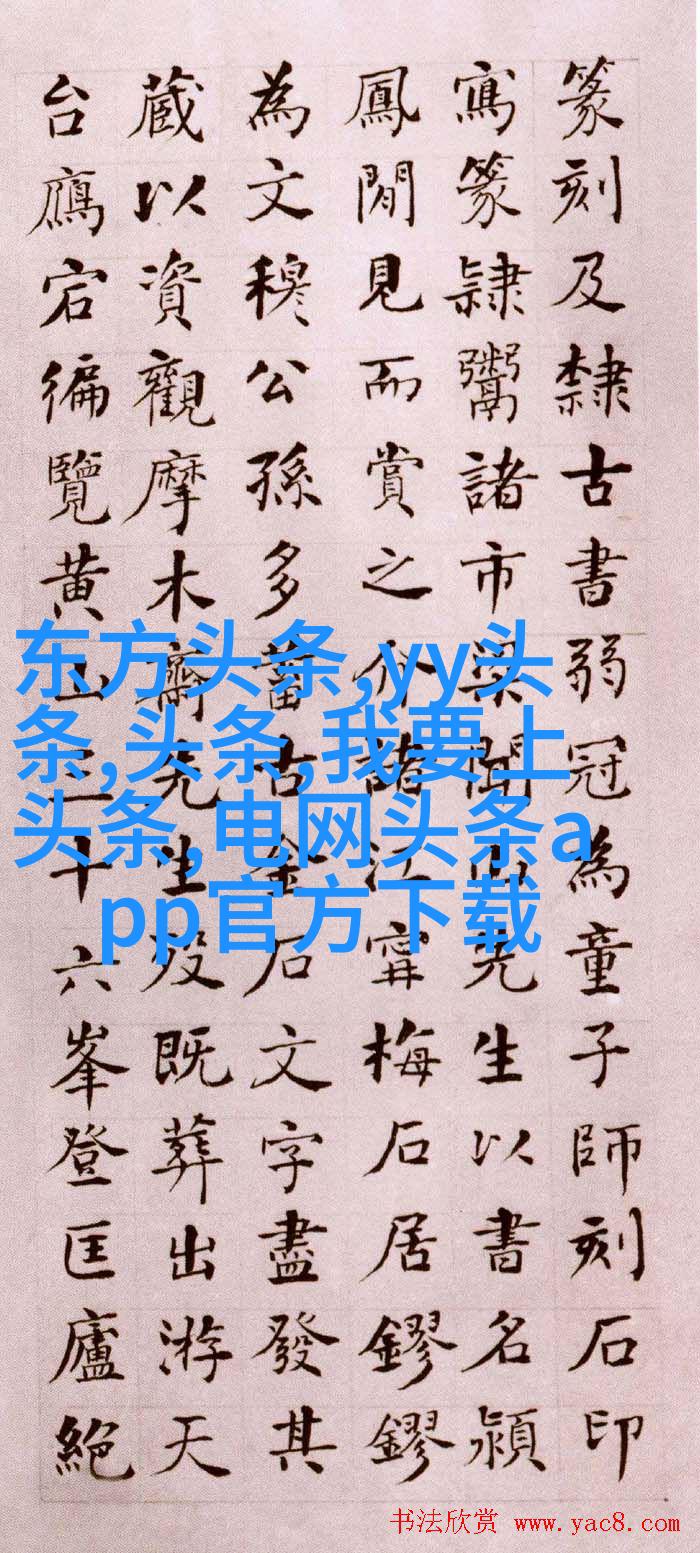 篆刻及隸古書弱冠為童子師刻石印
寫篆隸鬻諸市梁聞山先生以書名潁
鳳閒見而賞之介諸江甯梅石居鏐鏐
為文穆公孫多蓄古金石文字盡發其
蔵以資觀摩木齋先生歿既葬出游天
台鴈宕徧覽黃山三十六峯登匡廬絕
东方头条,yy头
条,头条,我要上
头条,电网头条a
pp官方下载
书法欣赏 www.yac8.com